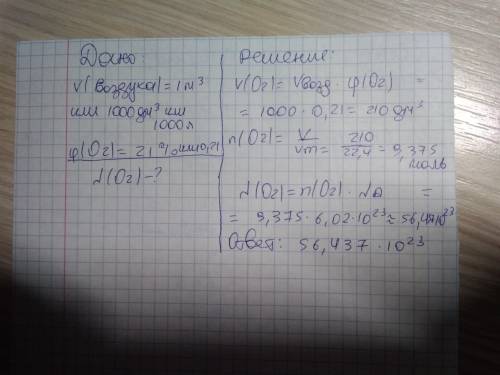 Дано:
V(воздуха) = 1м³
или 1000 дм³ или
1000л
φ(O₂) = 21% или 0,21
N(O₂) - ?
Решение:
V(O₂) = Vвозд · φ(O₂) =
= 1000 · 0,21 = 210 дм³
n(O₂) = V/Vm = 210/22,4 = 9,375
моль
N(O₂) = n(O₂) · NA =
= 9,375 · 6,02 · 10²³ ≈
Ответ: 56,437 · 10²³